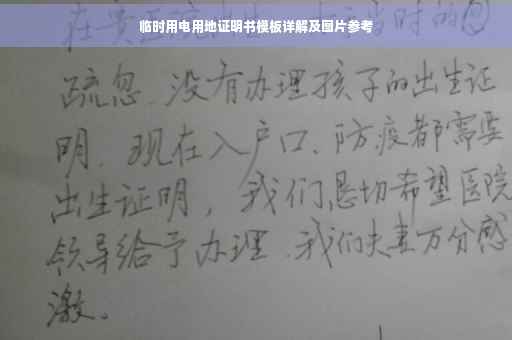 临时用电用地证明书模板详解及图片参考
当时的
疏忽、没有办理孩子的出生证
明、现在入户口、防疫都需要
出生证明，我们恳切希望医院
领导给予办理、我们夫妻万分感
激。